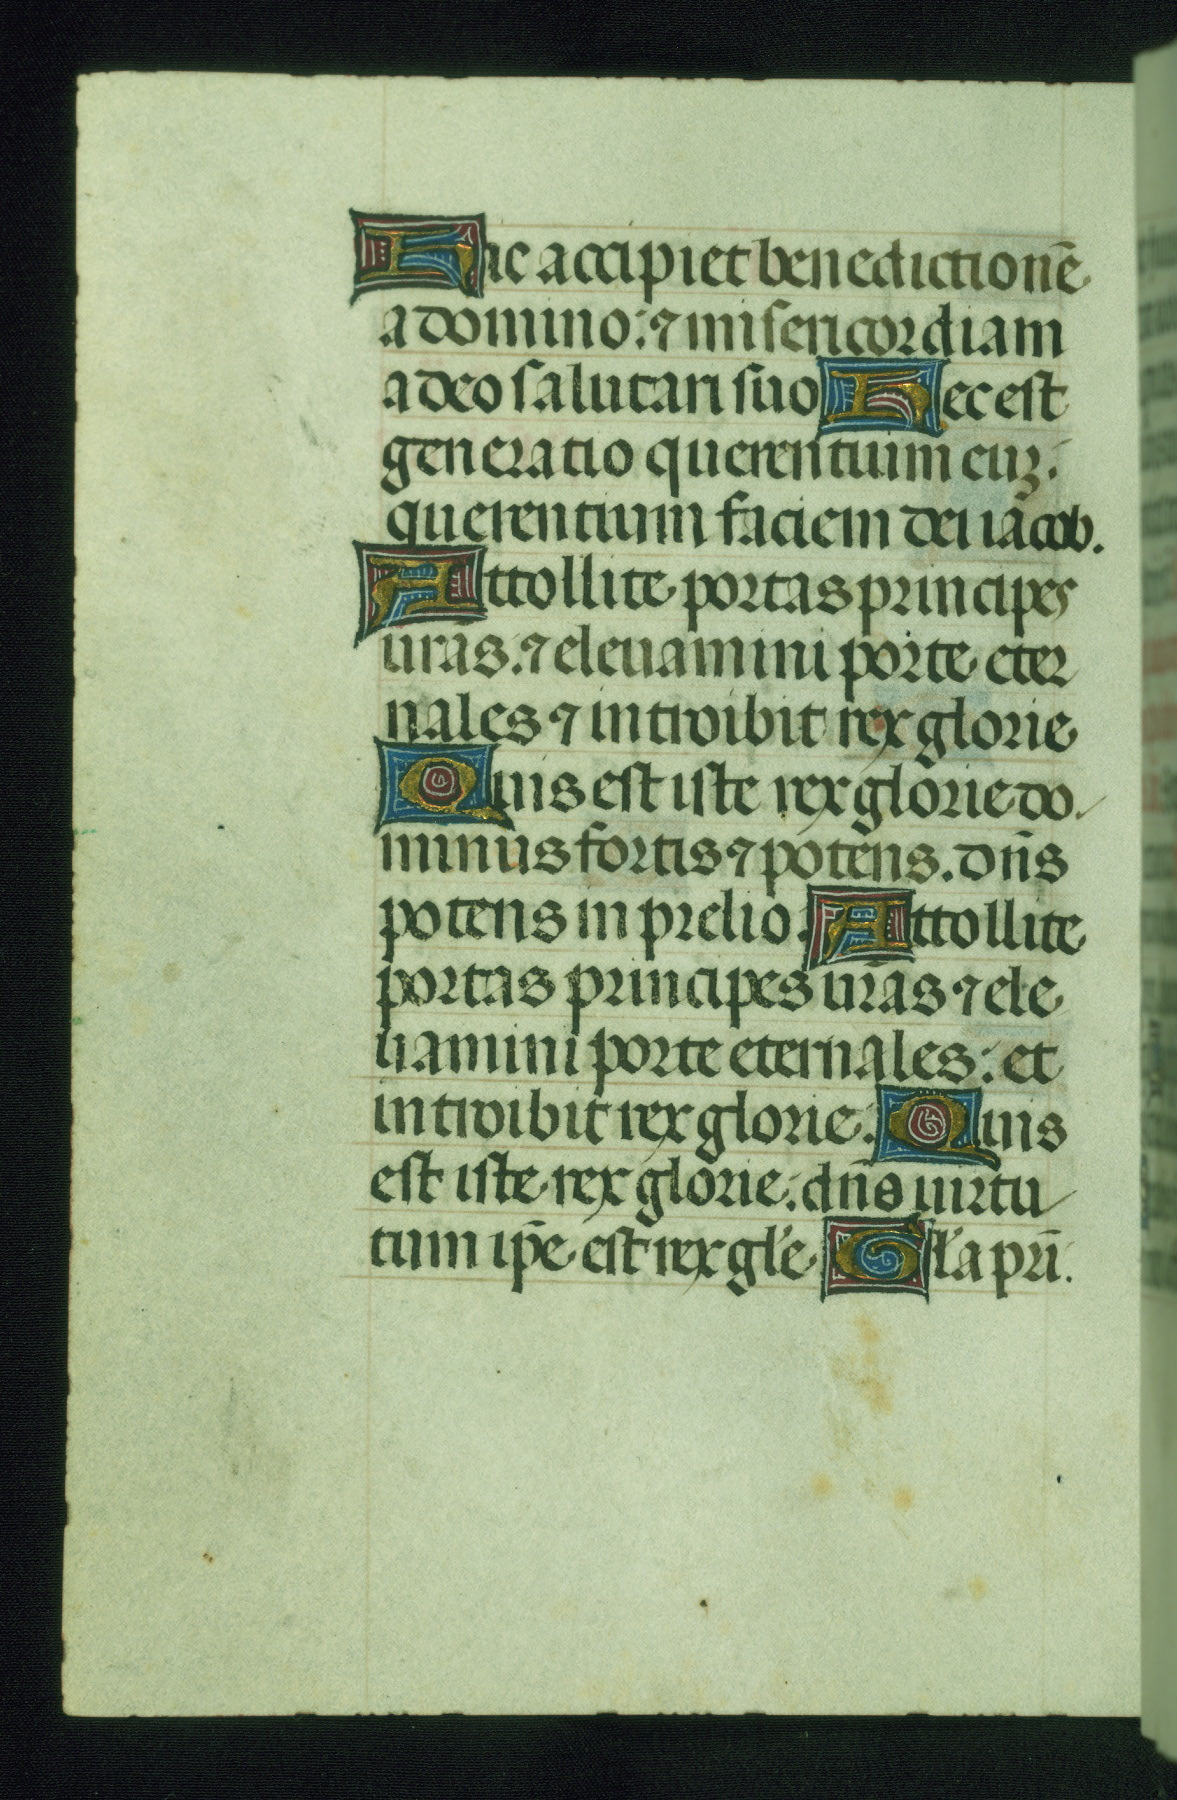 Hic accipiet benedictionē
a domino: ⁊ misericordiam
a deo salutari suo Hec est
generatio querentiuim euꝫ.
querentium faciem dei iacob.
Attollite portas principes
ur̄as. ⁊ eleuamini porte eter
nales ⁊ introibit rex glorie
Quis est iste rex glorie do
minus fortis ⁊ potens. dn̄s
potens in prelio. Attollite
portas principes ur̄as ⁊ ele
uamini porte eternales: et
introibit rex glorie. Quis
est iste rex glorie: dn̄s uirtu
tum ip̄e est rex gl'e Gl'a pr̄i.